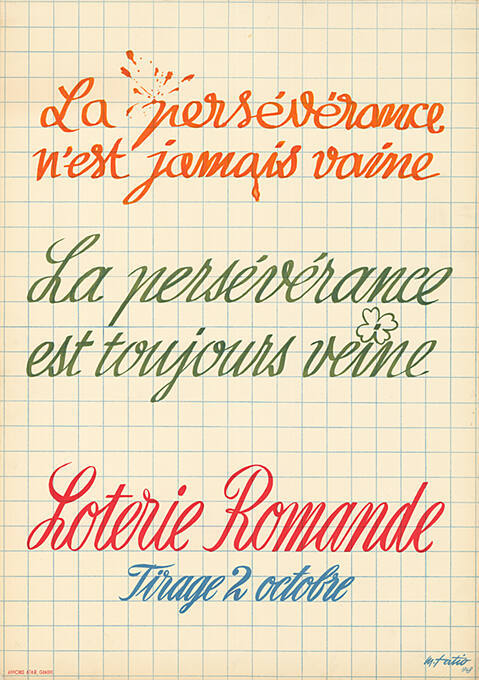 La persévérance
n'est jamais vaine
La persévérance
est toujours veine
Loterie Romande
Tirage 2 octobre
M. Fatio
AFFICHES ATAR GENÈVE